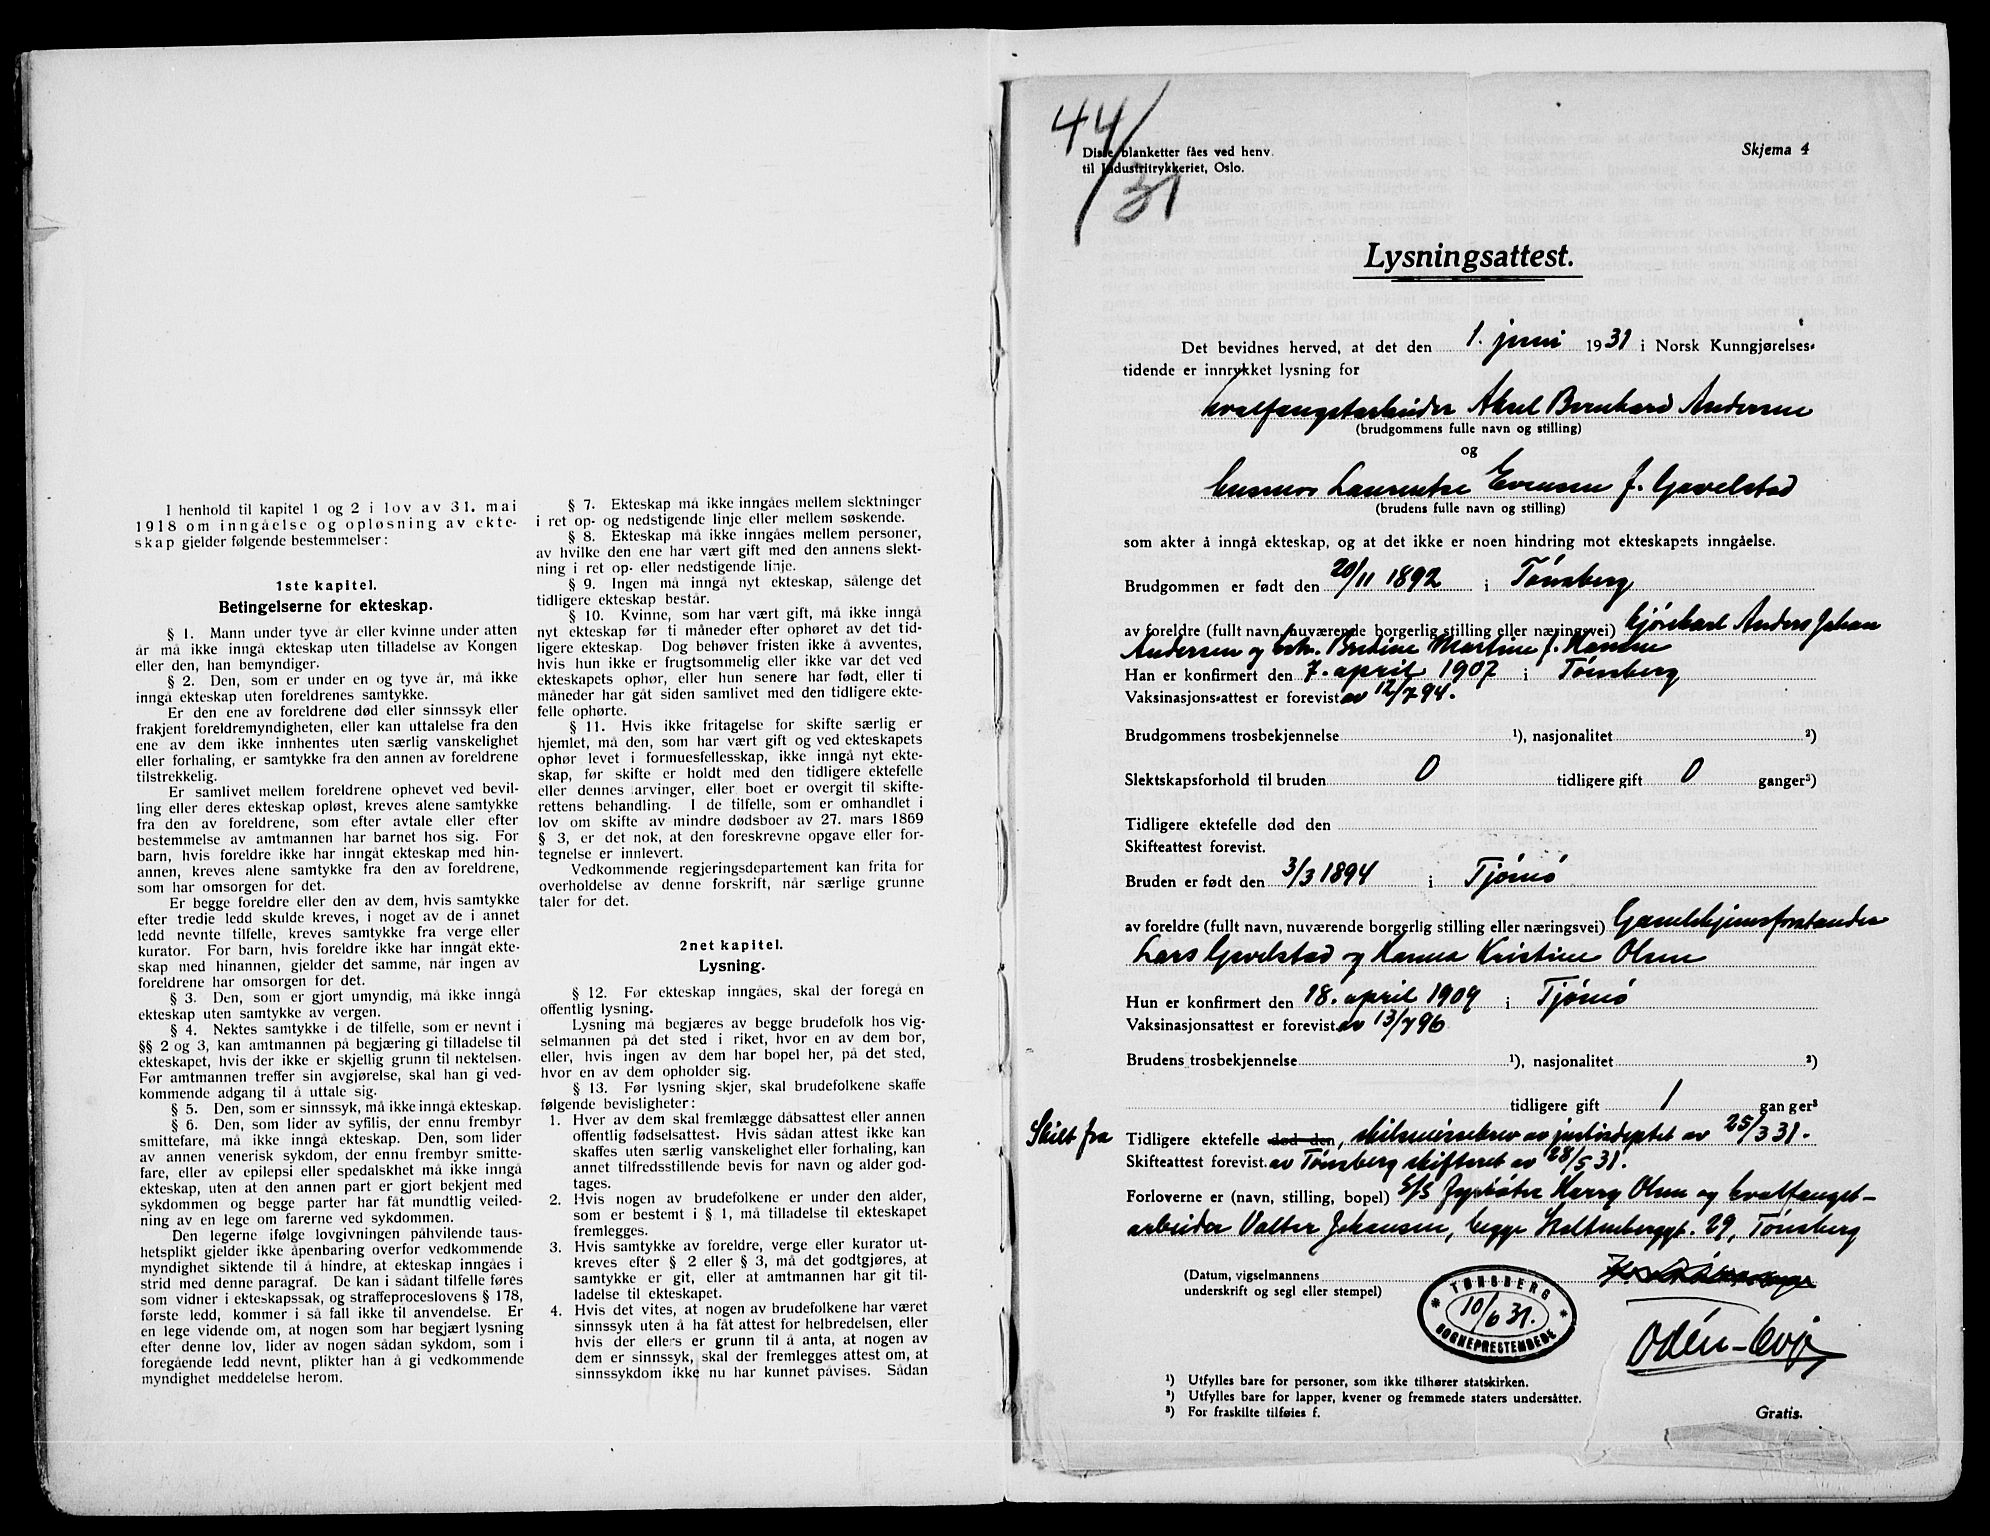 I henhold til kapitel 1 og 2 i lov av 31. mai
1918 om inngåelse og opløsning av ekte-
skap gjelder følgende bestemmelser:
1ste kapitel.
Betingelserne for ekteskap.
§ 1. Mann under tyve år eller kvinne under atten
år må ikke inngå ekteskap uten tilladelse av Kongen
eller den, han bemyndiger.
§ 2. Den, som er under en og tyve år, må ikke
inngå ekteskap uten foreldrenes samtykke.
Er den ene av foreldrene død eller sinnssyk eller
frakjent foreldremyndigheten, eller kan uttalelse fra den
ene av dem ikke innhentes uten særlig vanskelighet
eller forhaling, er samtykke fra den annen av foreldrene
tilstrekkelig.
Er samlivet mellem foreldrene ophevet ved bevil-
ling eller deres ekteskap opløst, kreves alene samtykke
fra den av foreldrene, som efter avtale eller efter
bestemmelse av amtmannen har barnet hos sig. For
barn, hvis foreldre ikke har inngåt ekteskap med hin-
annen, kreves alene samtykke fra den av foreldrene,
som har omsorgen for det.
Er begge foreldre eller den av dem, hvis samtykke
efter tredje ledd skulde kreves, i noget av de i annet
ledd nevnte tilfelle, kreves samtykke fra verge eller
kurator. For barn, hvis foreldre ikke har inngåt ekte-
skap med hinannen, gjelder det samme, når ingen av
foreldrene har omsorgen for det.
§ 3. Den, som er gjort umyndig, må ikke inngå
ekteskap uten samtykke av vergen.
§ 4. Nektes samtykke i de tilfelle, som er nevnt i
§§ 2 og 3, kan amtmannen på begjæring gi tilladelse til
ekteskapet, hvis der ikke er skjellig grunn til nektelsen.
Før amtmannen treffer sin avgjørelse, skal han gi ved-
kommende adgang til å uttale sig.
§ 5. Den, som er sinnssyk, må ikke inngå ekteskap.
§ 6. Den, som lider av syfilis, der ennu frembyr
smittefare, må ikke inngå ekteskap. Den, som lider
av annen venerisk sykdom, der ennu frembyr smitte-
fare, eller av epilepsi eller spedalskhet må ikke inngå
ekteskap, uten at den annen part er gjort bekjent med
sykdommen og begge parter har fåt mundtlig veiled-
ning av en lege om farerne ved sykdommen.
Den legerne ifølge lovgivningen påhvilende taus-
hetsplikt gjelder ikke åpenbaring overfor vedkommende
myndighet siktende til å hindre, at ekteskap inngåes i
strid med denne paragraf. De kan i sådant tilfelle føres
som vidner i ekteskapssak, og straffeproceslovens § 178,
første ledd, kommer i så fall ikke til anvendelse. Er
en lege vidende om, at nogen som har begjært lysning
efter denne lov, lider av nogen sådan sykdom, som i
foregående ledd nevnt, plikter han å gi vedkommende
myndighet meddelelse herom.
§ 7. Ekteskap må ikke inngåes mellem slektninger
i ret op- og nedstigende linje eller mellem søskende.
§ 8. Ekteskap må ikke inngåes mellem personer,
av hvilke den ene har vært gift med den annens slekt-
ning i ret op- eller nedstigende linje.
§ 9. Ingen må inngå nyt ekteskap, sålenge det
tidligere ekteskap består.
§ 10. Kvinne, som har vært gift, må ikke inngå
nyt ekteskap før ti måneder efter ophøret av det tid-
ligere ekteskap. Dog behøver fristen ikke å avventes,
hvis hun ikke er frugtsommelig eller ikke var det ved
ekteskapets ophør, eller hun senere har født, eller ti
måneder har gåt siden samlivet med den tidligere ekte-
felle ophørte.
§ 11. Hvis ikke fritagelse for skifte særlig er
hjemlet, må den, som har vært gift og ved ekteskapets
ophør levet i formuesfellesskap, ikke inngå nyt ekte-
skap, før skifte er holdt med den tidligere ektefelle
eller dennes arvinger, eller boet er overgit til skifte-
rettens behandling. I de tilfelle, som er omhandlet i
lov om skifte av mindre dødsboer av 27. mars 1869
§ 3, er det nok, at den foreskrevne opgave eller for-
tegnelse er innlevert.
Vedkommende regjeringsdepartement kan frita for
overholdelse av denne forskrift, når særlige grunne
taler for det.
2net kapitel.
Lysning.
§ 12. Før ekteskap inngåes, skal der foregå en
offentlig lysning.
Lysning må begjæres av begge brudefolk hos vig-
selmannen på det sted i riket, hvor en av dem bor,
eller, hvis ingen av dem har bopel her, på det sted,
hvor en av dem opholder sig.
§ 13. Før lysning skjer, skal brudefolkene skaffe
følgende bevisligheter:
1. Hver av dem skal fremlægge dåbsattest eller annen
offentlig fødselsattest. Hvis sådan attest ikke kan
skaffes uten særlig vanskelighet eller forhaling, kan
annet tilfredsstillende bevis for navn og alder god-
tages.
2. Hvis nogen av brudefolkene er under den alder,
som er bestemt i § 1, må tilladelse til ekteskapet
fremlegges.
3. Hvis samtykke av foreldre, verge eller kurator ut-
kreves efter § 2 eller § 3, må det godtgjøres, at
samtykke er git, eller at amtmannen har git til-
ladelse til ekteskapet.
4. Hvis det vites, at nogen av brudefolkene har været
sinnssyk uten å ha fåt attest for helbredelsen, eller
hvis der ellers er grunn til å anta, at nogen av
dem er sinnssyk, skal der fremlegges attest om, at
sinnssykdom ikke nu har kunnet påvises. Sådan
44/31
Disse blanketter fåes ved henv.
til Industritrykkeriet, Oslo.
Skjema 4
Lysningsattest.
Det bevidnes herved, at det den 1. juni 1931 i Norsk Kunngjørelses-
tidende er innrykket lysning for
hvalfangstarbeider Aksel Bernhard Andersen
(brudgommens fulle navn og stilling)
og
husmor Laurentse Evensen f. Gavelstad
(brudens fulle navn og stilling)
som akter å inngå ekteskap, og at det ikke er noen hindring mot ekteskapets inngåelse.
Brudgommen er født den 20/11 1892 i Tønsberg
av foreldre (fullt navn, nuværende borgerlig stilling eller næringsvei) kjørekarl Anders Johan
Andersen og hstr. Bredine Martine f. Hansen
Han er konfirmert den 7. april 1907 i Tønsberg
Vaksinasjons-attest er forevist av 12/7 94.
Brudgommens trosbekjennelse ¹), nasjonalitet ²)
Slektskapsforhold til bruden 0 tidligere gift 0 ganger³)
Tidligere ektefelle død den
Skifteattest forevist.
Bruden er født den 3/3 1894 i Tjømø
av foreldre (fullt navn, nuværende borgerlig stilling eller næringsvei) Gamlehjemsforstander
Lars Gavelstad og Hanna Kristine Olsen
Hun er konfirmert den 18. april 1909 i Tjømø
Vaksinasjonsattest er forevist av 13/7 96
Brudens trosbekjennelse ¹), nasjonalitet ²)
tidligere gift 1 ganger³
Skilt fra Tidligere ektefelle død den, skilsmissebrev av justisdeptet av 25/3 31.
Skifteattest forevist. av Tønsberg skifteret av 28/5 31.
Forloverne er (navn, stilling, bopel) Fyrbøter Harry Olsen og hvalfangst-
arbeider Valter Johansen, begge Stoltenberggt. 29, Tønsberg
(Datum, vigselmannens
underskrift og segl eller stempel)
TØNSBERG
10/6 31.
SOGNEPRESTEMBEDE
Odén-Evje
¹) Utfylles bare for personer, som ikke tilhører statskirken.
²) Utfylles bare for lapper, kvener og fremmede staters undersåtter.
³) For fraskilte tilføies f.
Gratis.